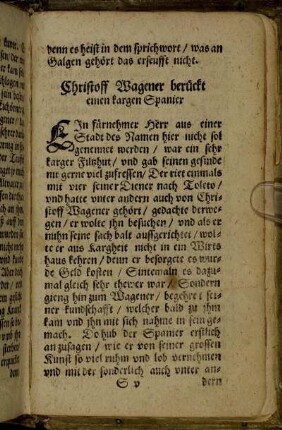 denn es heist in dem sprichwort / was an
Galgen gehört das erseufft nicht.
Christoff Wagener berückt
einen kargen Spanier
EIn fürnehmer Herr aus einer
Stadt des Namen hier nicht sol
genennet werden / war ein sehr
karger Filtzhut / und gab seinen gesinde
nit gerne viel zufressen / Der riet einmals
mit vier seiner Diener nach Toleto /
vnd hatte unter andern auch von Chri-
stoff Wagener gehört / gedachte derwe-
gen / er wolte ihn besuchen / vnd als er
nuhn seine sach bald ausgerichtet / wol-
te er aus Kargheit nicht in ein Wirts
haus kehren / denn er besorgete es wür-
de Geld kosten / Sintemaln es dazu-
mal gleich sehr thewer war / Sondern
gieng hin zum Wagener / begehrt sei-
ner kundschafft / welcher bald zu ihm
kam vnd ihn mit sich nahm in sein ge-
mach. Do hub der Spanier erstlich
an zusagen / wie er von seiner grossen
Kunst so viel ruhm vnd lob vernehmen
vnd mit der sonderlich auch unter an-
S v
dern